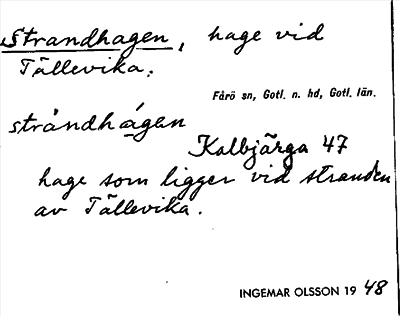 Strandhagen, hage vid
Tällevika.
Fårö sn, Gotl. n. hd, Gotl. län.
stråndhágen
Kalbjärga 47
hage som ligger vid stranden
av Tällevika.
INGEMAR OLSSON 1948